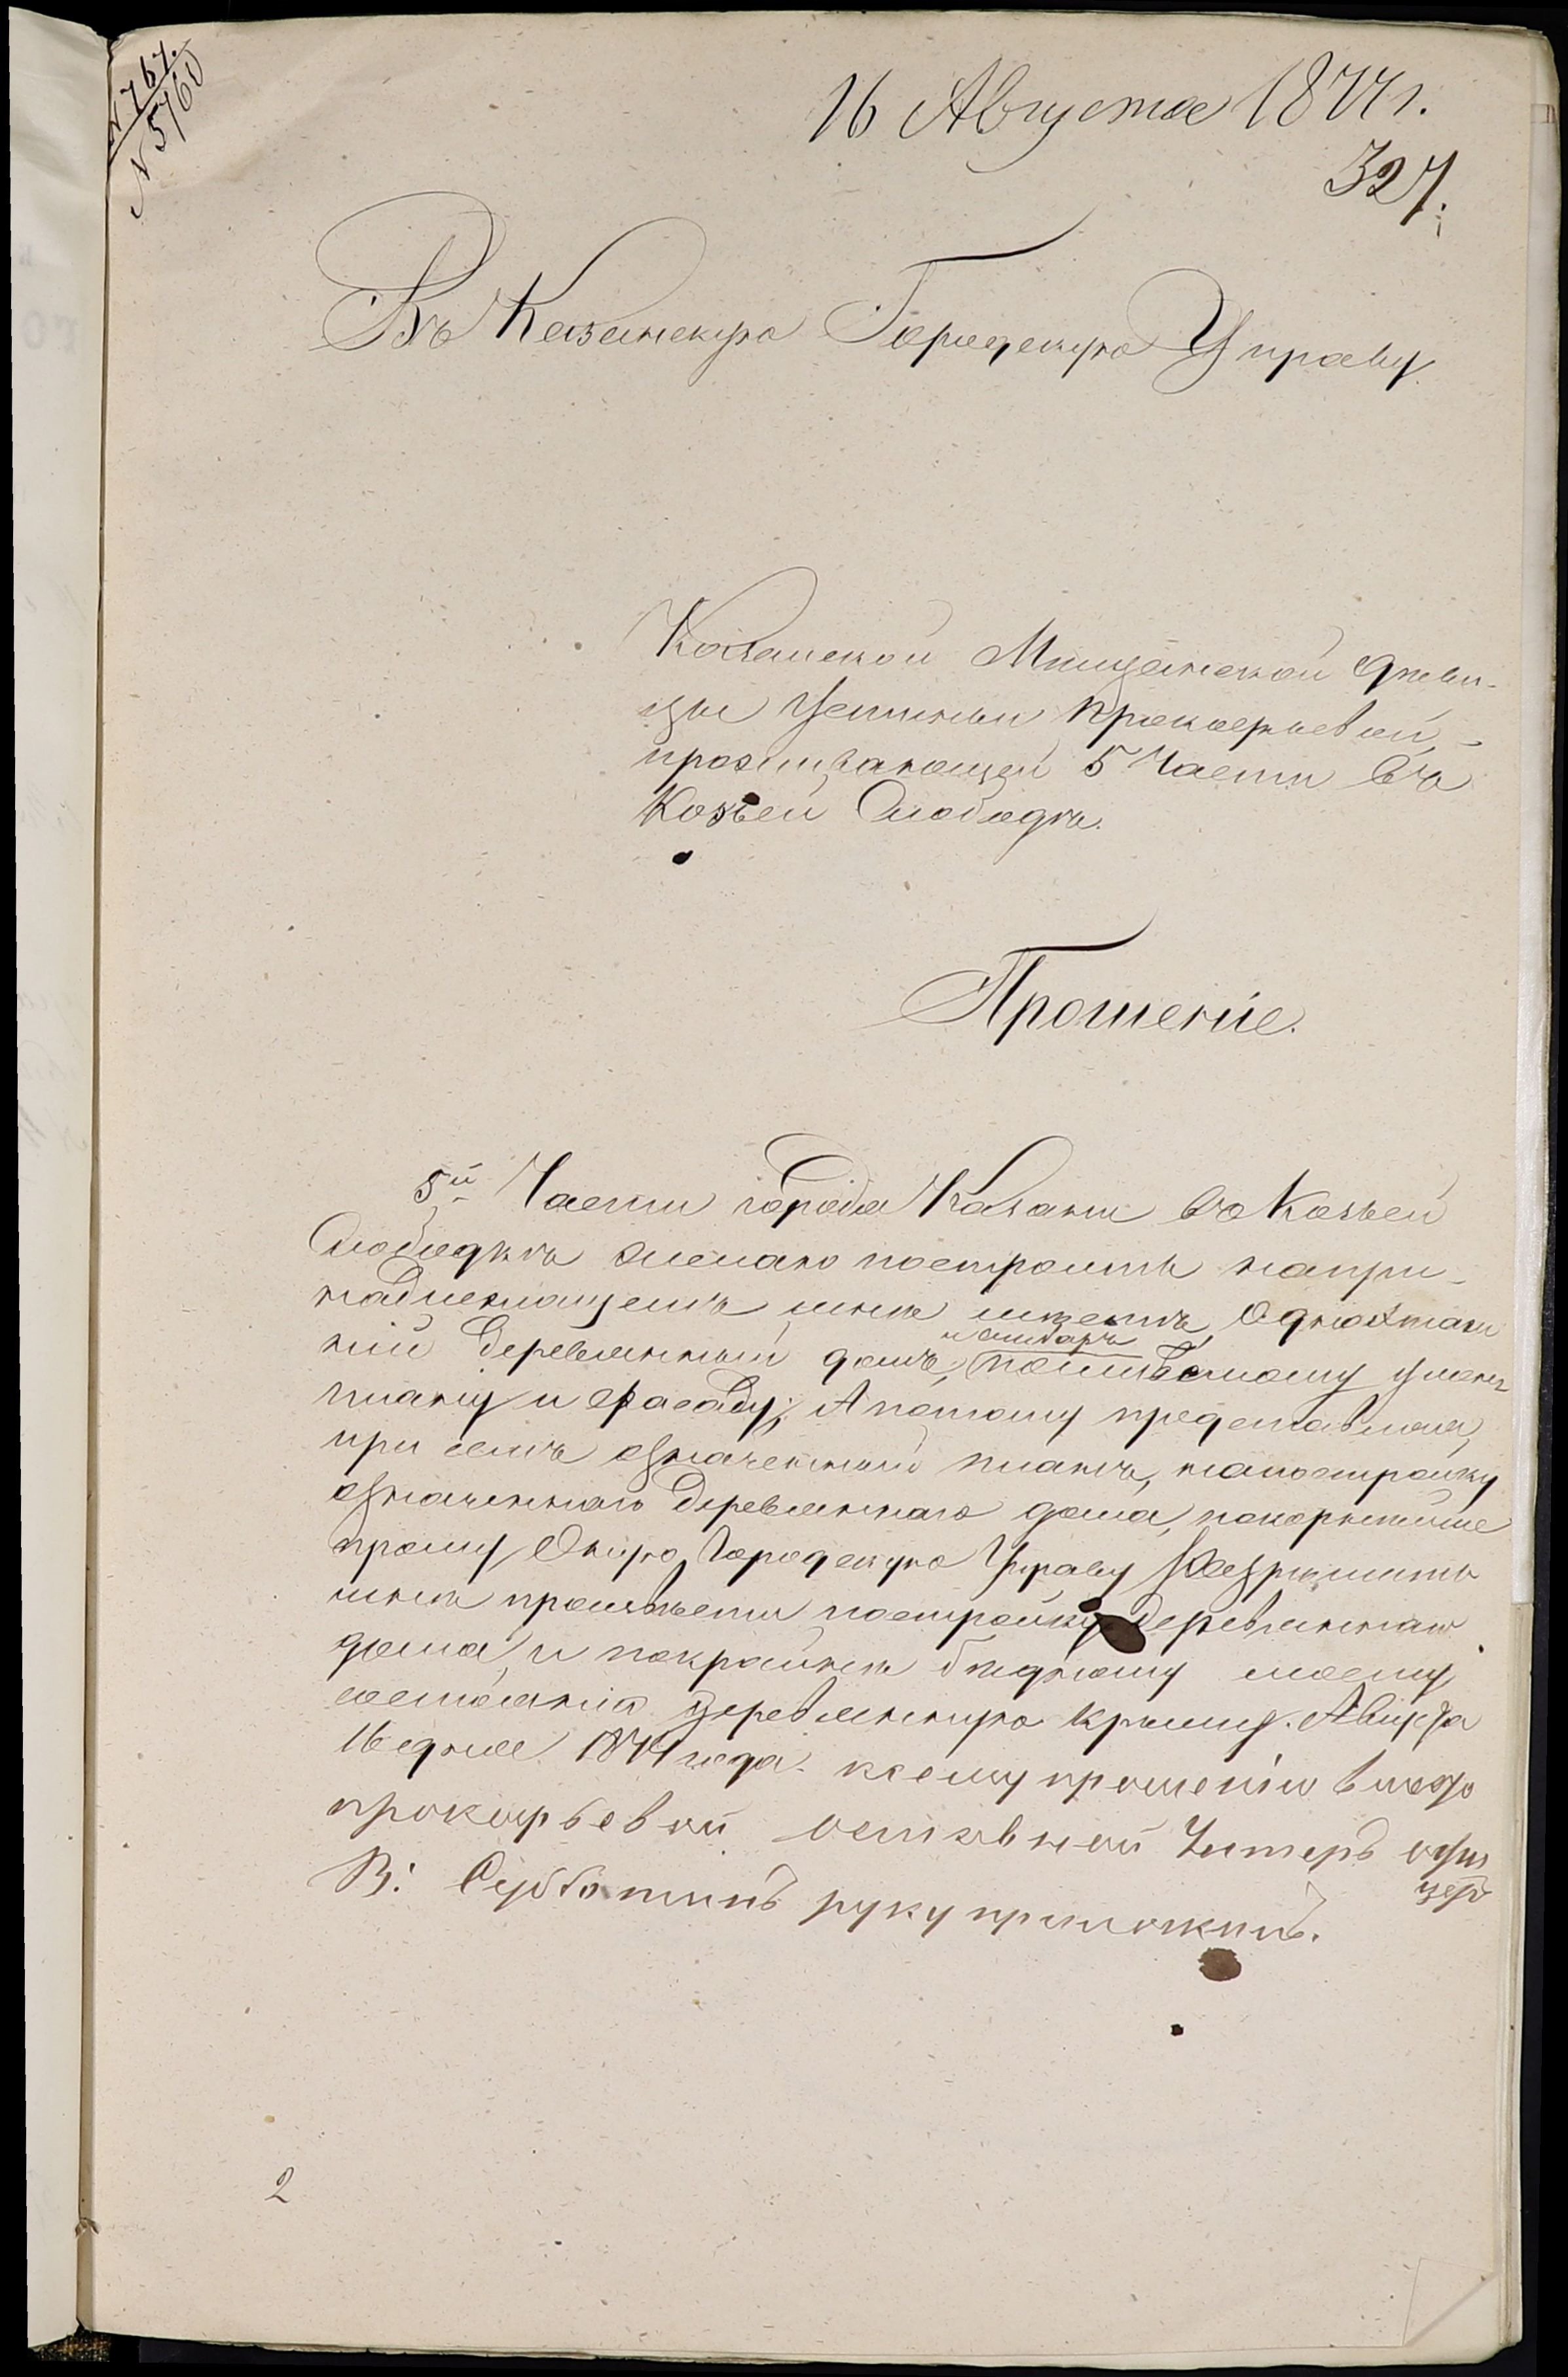 N 767.
N 5760
16 Августа 1877 г.
327.
Въ Казанскую Городскую Управу
Казанской Мищанской дѣви-
цы Устиньи Прокофьевой,
проживающей 5 Части въ
Козьей Слободкѣ.
Прошеніе.
5й Части города Казани въ Козьей
Слободкѣ желаю построить напри-
надлежащемъ мнѣ мѣстѣ, Одноэтаж
ній деревянный домъ, и анбаръ
плану и фасаду; А потому представляя,
при семъ означенный планъ, напостройку
означеннаго деревяннаго дома, покорнѣйше
прошу Оную Городскую Управу Разрѣшить
мнѣ произвѣсти постройку деревяннаго
дома, и покрайнѣ бѣдному моему
состоянію деревянную крышу. Августа
16 дня 1877 года. ксему прошенію вместо
прокофьевой отставной Унтеръ офи
церъ
В: Субботинъ руку приложилъ.
2